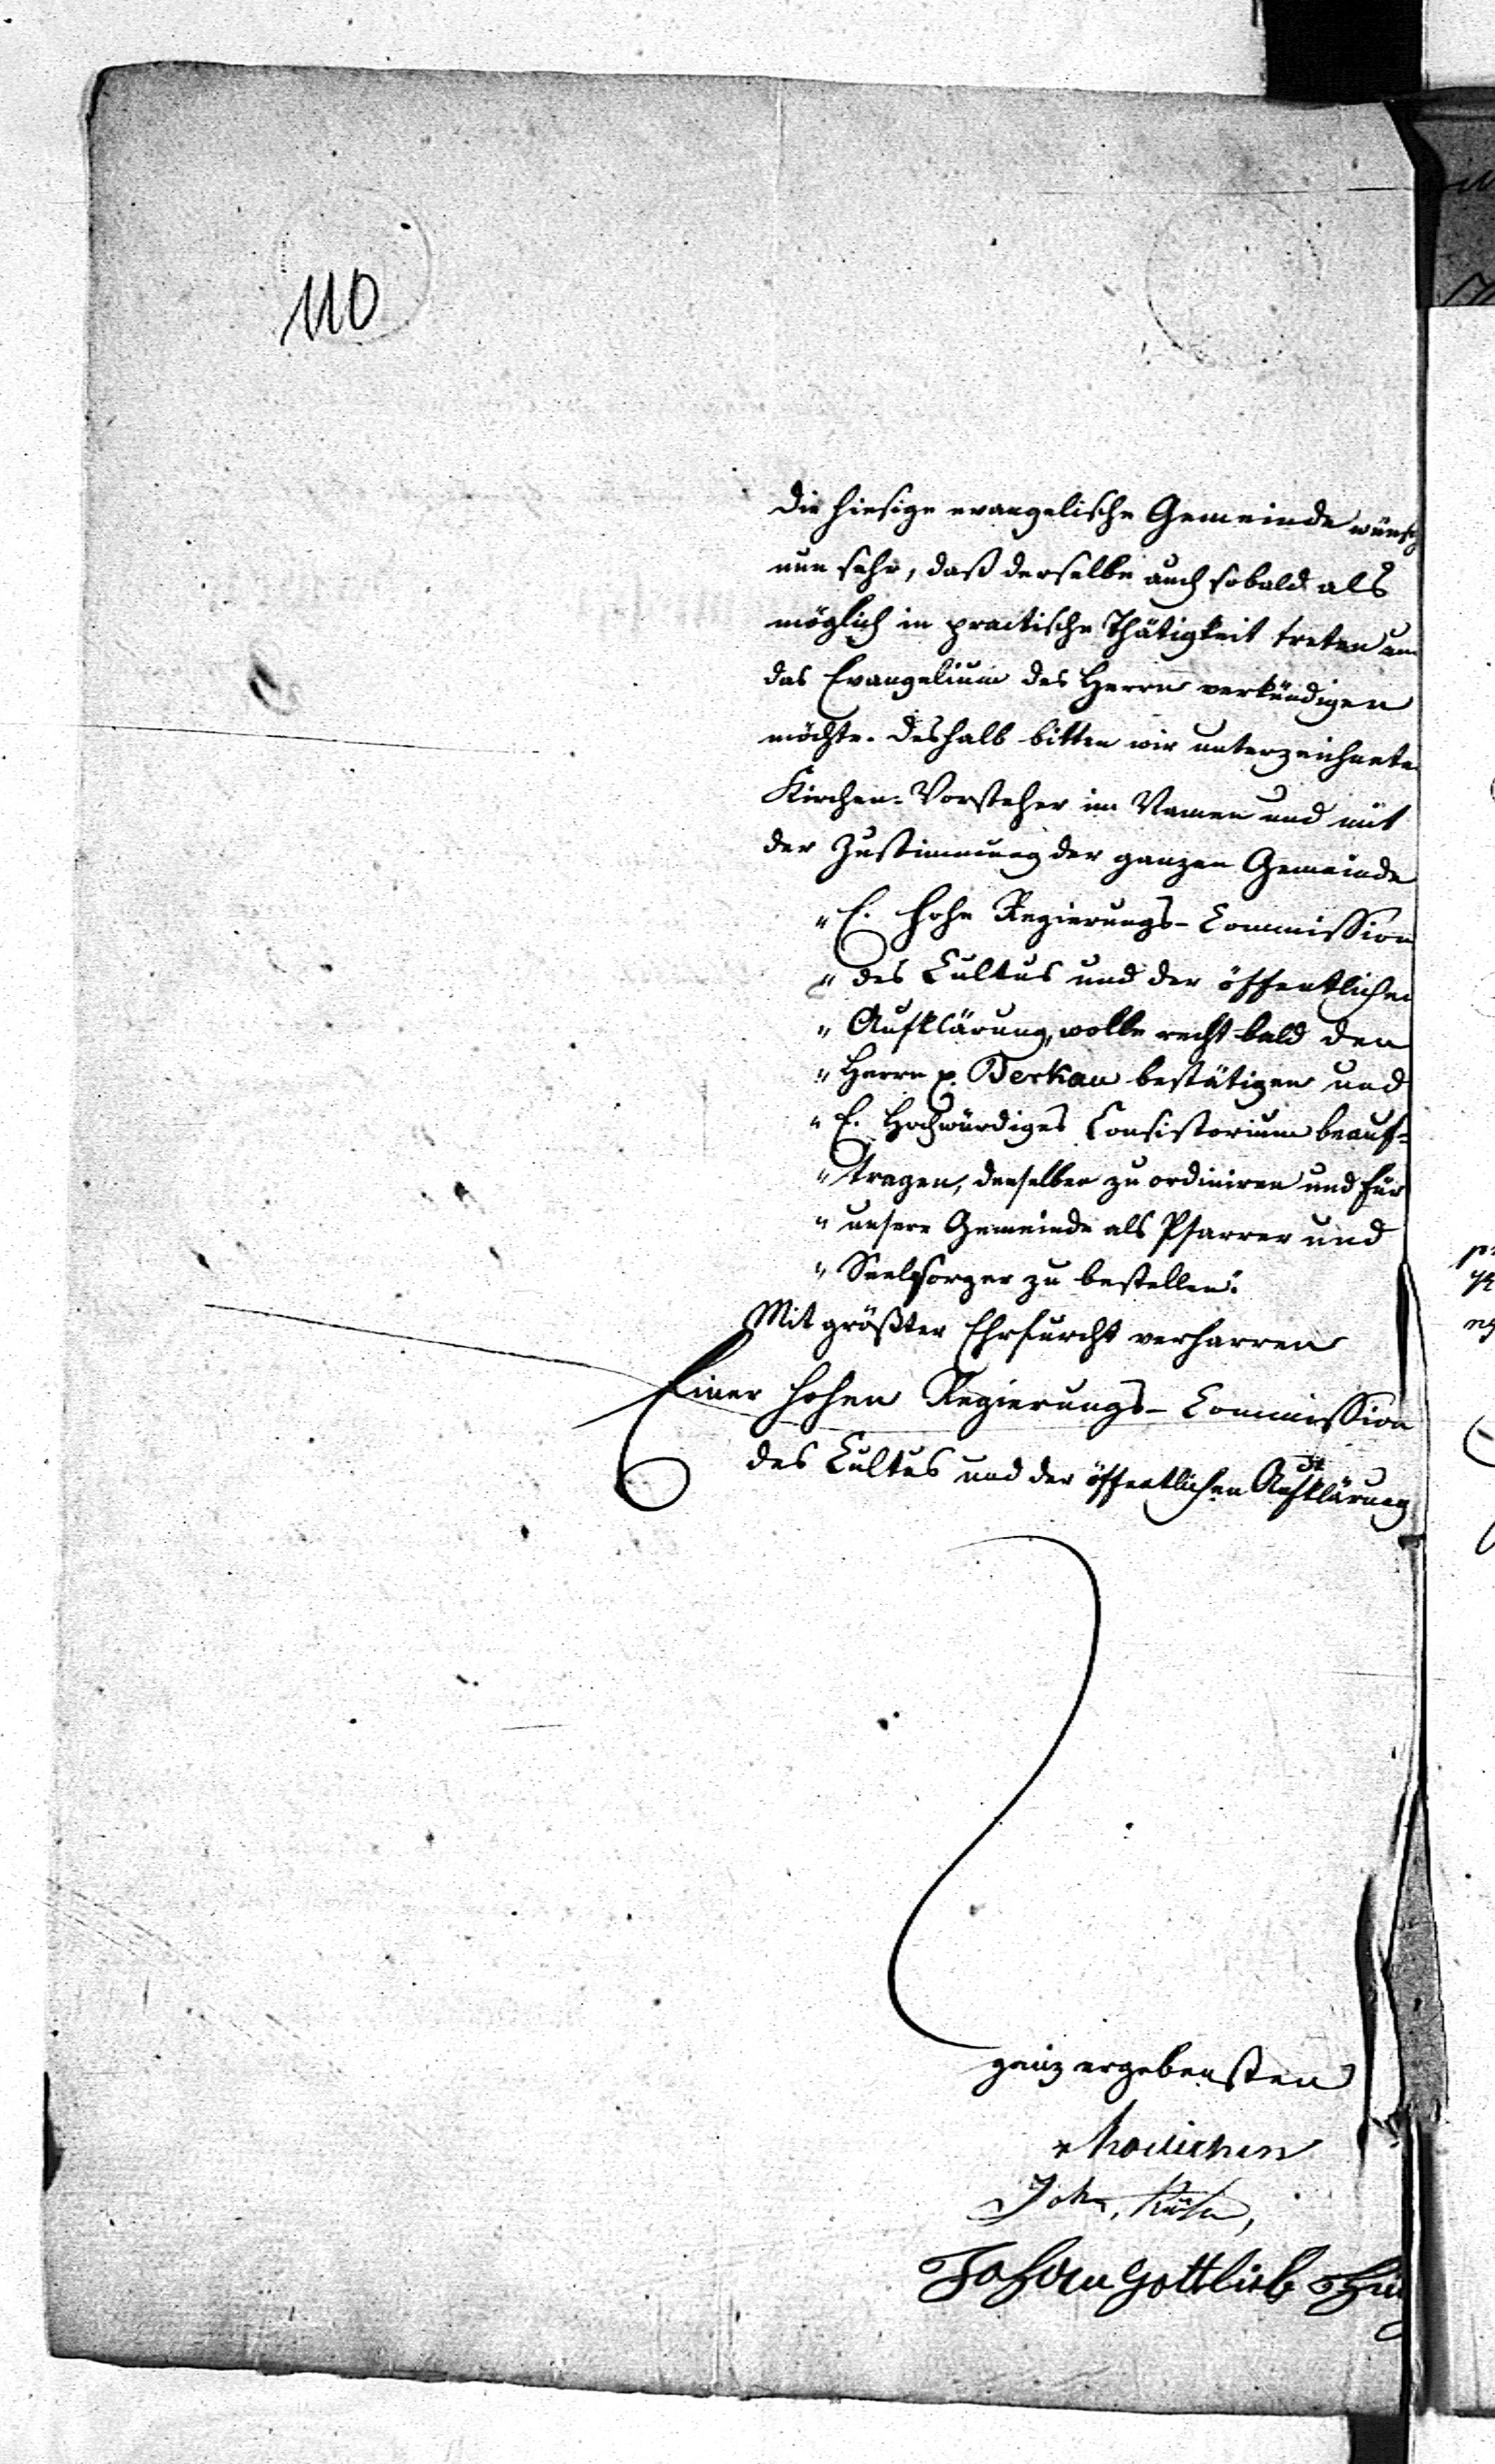 110
Die hiesige evangelische Gemeinde wünsch
nun sehr, daß derselbe auch sobald als
möglich in practische Thätigkeit treten um
das Evangelium des Herrn verkündigen
möchte. Deshalb bitten wir unterzeichnete
Kirchen-Vorsteher im Namen und mit
der Zustimmung der ganzen Gemeinde
„E. Hohe Regierungs-Commission
„des Cultus und der öffentlichen
„Aufklärung, wolle recht bald den
„Herrn p. Berkau bestätigen und
„E. Hochwürdiges Consistorium beauf-
„tragen, denselben zu ordiniren und für
„unsere Gemeinde als Pfarrer und
„Seelsorger zu bestellen."
Mit größter Ehrfurcht verharren
Einer Hohen Regierungs-Commission
des Cultus und der öffentlichen Aufklärung
ganz ergebensten
Joh.
Johan Gottlieb